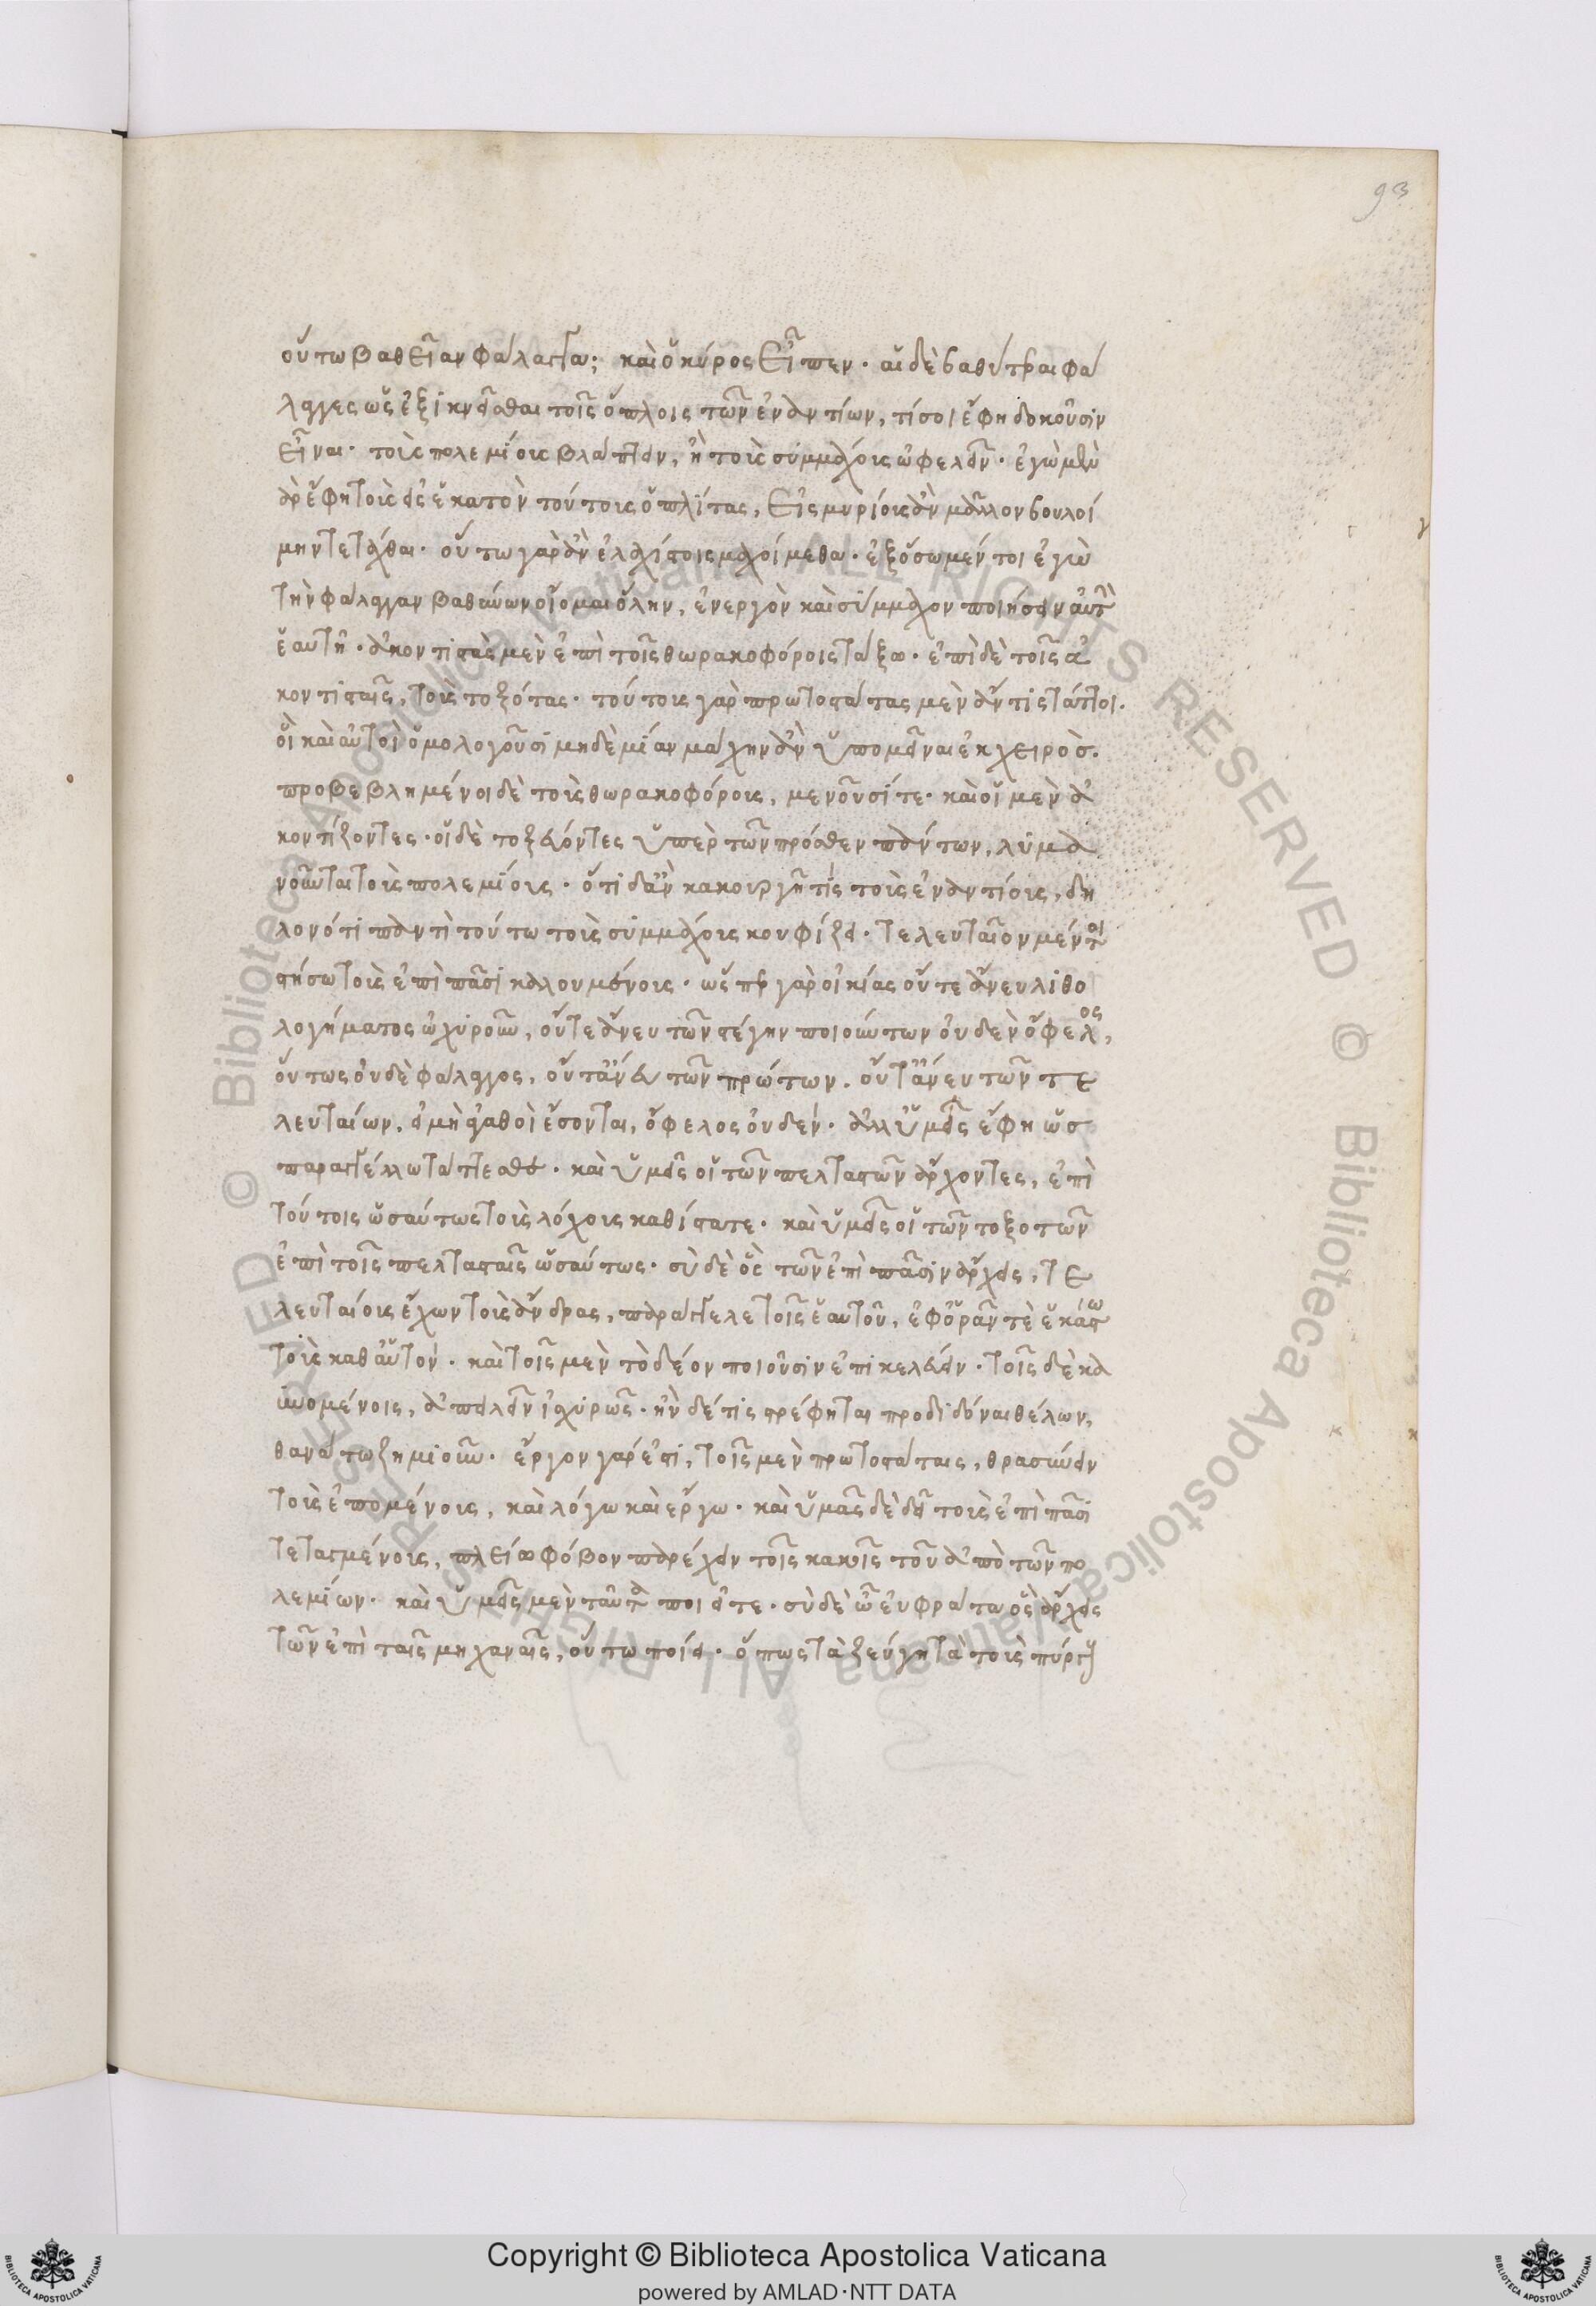 93
οὕτω βαθεῖαν φάλαγγα; καὶ ὁ κῦρος εἶπεν. αἱ δὲ βαθύτεραι φά
λαγγες ὡς ἐξικνεῖσθαι τοῖς ὅπλοις τῶν ἐναντίων, τί σοι ἔφη δοκοῦσιν
εἶναι. τοὺς πολεμίους βλάπτειν, ἢ τοὺς συμμάχους ὠφελεῖν. ἐγὼ μὲν
γὰρ ἔφη τοὺς εἰς ἑκατὸν τούτους ὁπλίτας, εἰς μυρίους ἂν μᾶλλον βουλοί
μην τετάχθαι. οὕτω γὰρ ἂν ἐλαχίστοις μαχοίμεθα. ἐξ ὅσων μέντοι ἐγὼ
τὴν φάλαγγαν βαθυνῶν οἴομαι ὅλην, ἐνεργὸν καὶ σύμμαχον ποιήσειν αὐτὴν
ἑαυτῇ. ἀκοντιστὰς μὲν ἐπὶ τοῖς θωρακοφόροις τάξω. ἐπὶ δὲ τοῖς ἀ
κοντισταῖς, τοὺς τοξότας. τούτους γὰρ πρωτοστάτας μὲν ἄν τις τάττοι.
οἳ καὶ αὐτοὶ ὁμολογοῦσι μηδὲ μίαν μάχην ἂν ὑπομεῖναι ἐκ χειρός.
προβεβλημένοι δὲ τοὺς θωρακοφόρους, μενοῦσί τε. καὶ οἱ μὲν ἀ
κοντίζοντες. οἱ δὲ τοξεύοντες ὑπὲρ τῶν πρόσθεν πάντων, λυμα
νοῦνται τοὺς πολεμίους. ὅτι δ' ἂν κακουργῇ τίς τοὺς ἐναντίους, δῆ
λον ὅτι παντὶ τούτω τοὺς συμμάχους κουφίζει. τελευταῖον μέντοι
στήσω τοὺς ἐπὶ πᾶσι καλουμένους. ὥσπερ γὰρ οἰκίας οὔτε ἄνευ λιθο
λογήματος ὀχυροῦ, οὔτε ἄνευ τῶν στέγην ποιούντων οὐδὲν ὄφελος,
οὕτως οὐδὲ φάλαγγος, οὔτ' ἄνευ τῶν πρώτων. οὔτ' ἄνευ τῶν τε
λευταίων, εἰ μὴ ἀγαθοὶ ἔσονται, ὄφελος οὐδέν. ἀλλ' ὑμεῖς ἔφη ὡς
παραγγέλλω τάττεσθε. καὶ ὑμεῖς οἱ τῶν πελταστῶν ἄρχοντες, ἐπὶ
τούτοις ὡσαύτως τοὺς λόχους καθίστατε. καὶ ὑμεῖς οἱ τῶν τοξοτῶν
ἐπὶ τοῖς πελτασταῖς ὡσαύτως. σὺ δὲ ὃς τῶν ἐπὶ πᾶσιν ἄρχεις, τε
λευταίους ἔχων τοὺς ἄνδρας, παράγγελε τοῖς ἑαυτοῦ, ἐφορᾶν τὲ ἑκάστω
τοὺς καθ' αὑτόν. καὶ τοῖς μὲν τὸ δέον ποιοῦσιν ἐπικελεύειν. τοῖς δὲ μα
λακυνομένοις, ἀπειλεῖν ἰσχυρῶς. ἢν δέ τις στρέφηται προδιδόναι θέλων,
θανάτω ζημιοῦν. ἔργον γάρ ἐστι, τοῖς μὲν πρωτοστάταις, θρασύνειν
τοὺς ἑπομένους, καὶ λόγω καὶ ἔργω. καὶ ὑμᾶς δὲ δεῖ τοὺς ἐπὶ πᾶσι
τεταγμένους, πλείω φόβον παρέχειν τοῖς κακοῖς τοῦ ἀπὸ τῶν πο
λεμίων. καὶ ὑμεῖς μὲν ταῦτα ποιεῖτε. σὺ δὲ ὦ εὐφράτα ὃς ἄρχεις
τῶν ἐπὶ ταῖς μηχαναῖς, οὕτω ποίει. ὅπως τὰ ζεύγη τὰ τοὺς πύργους
© Biblioteca Apostolica Vaticana ALL RIGHTS RESERVED
Copyright © Biblioteca Apostolica Vaticana
powered by AMLAD·NTT DATA